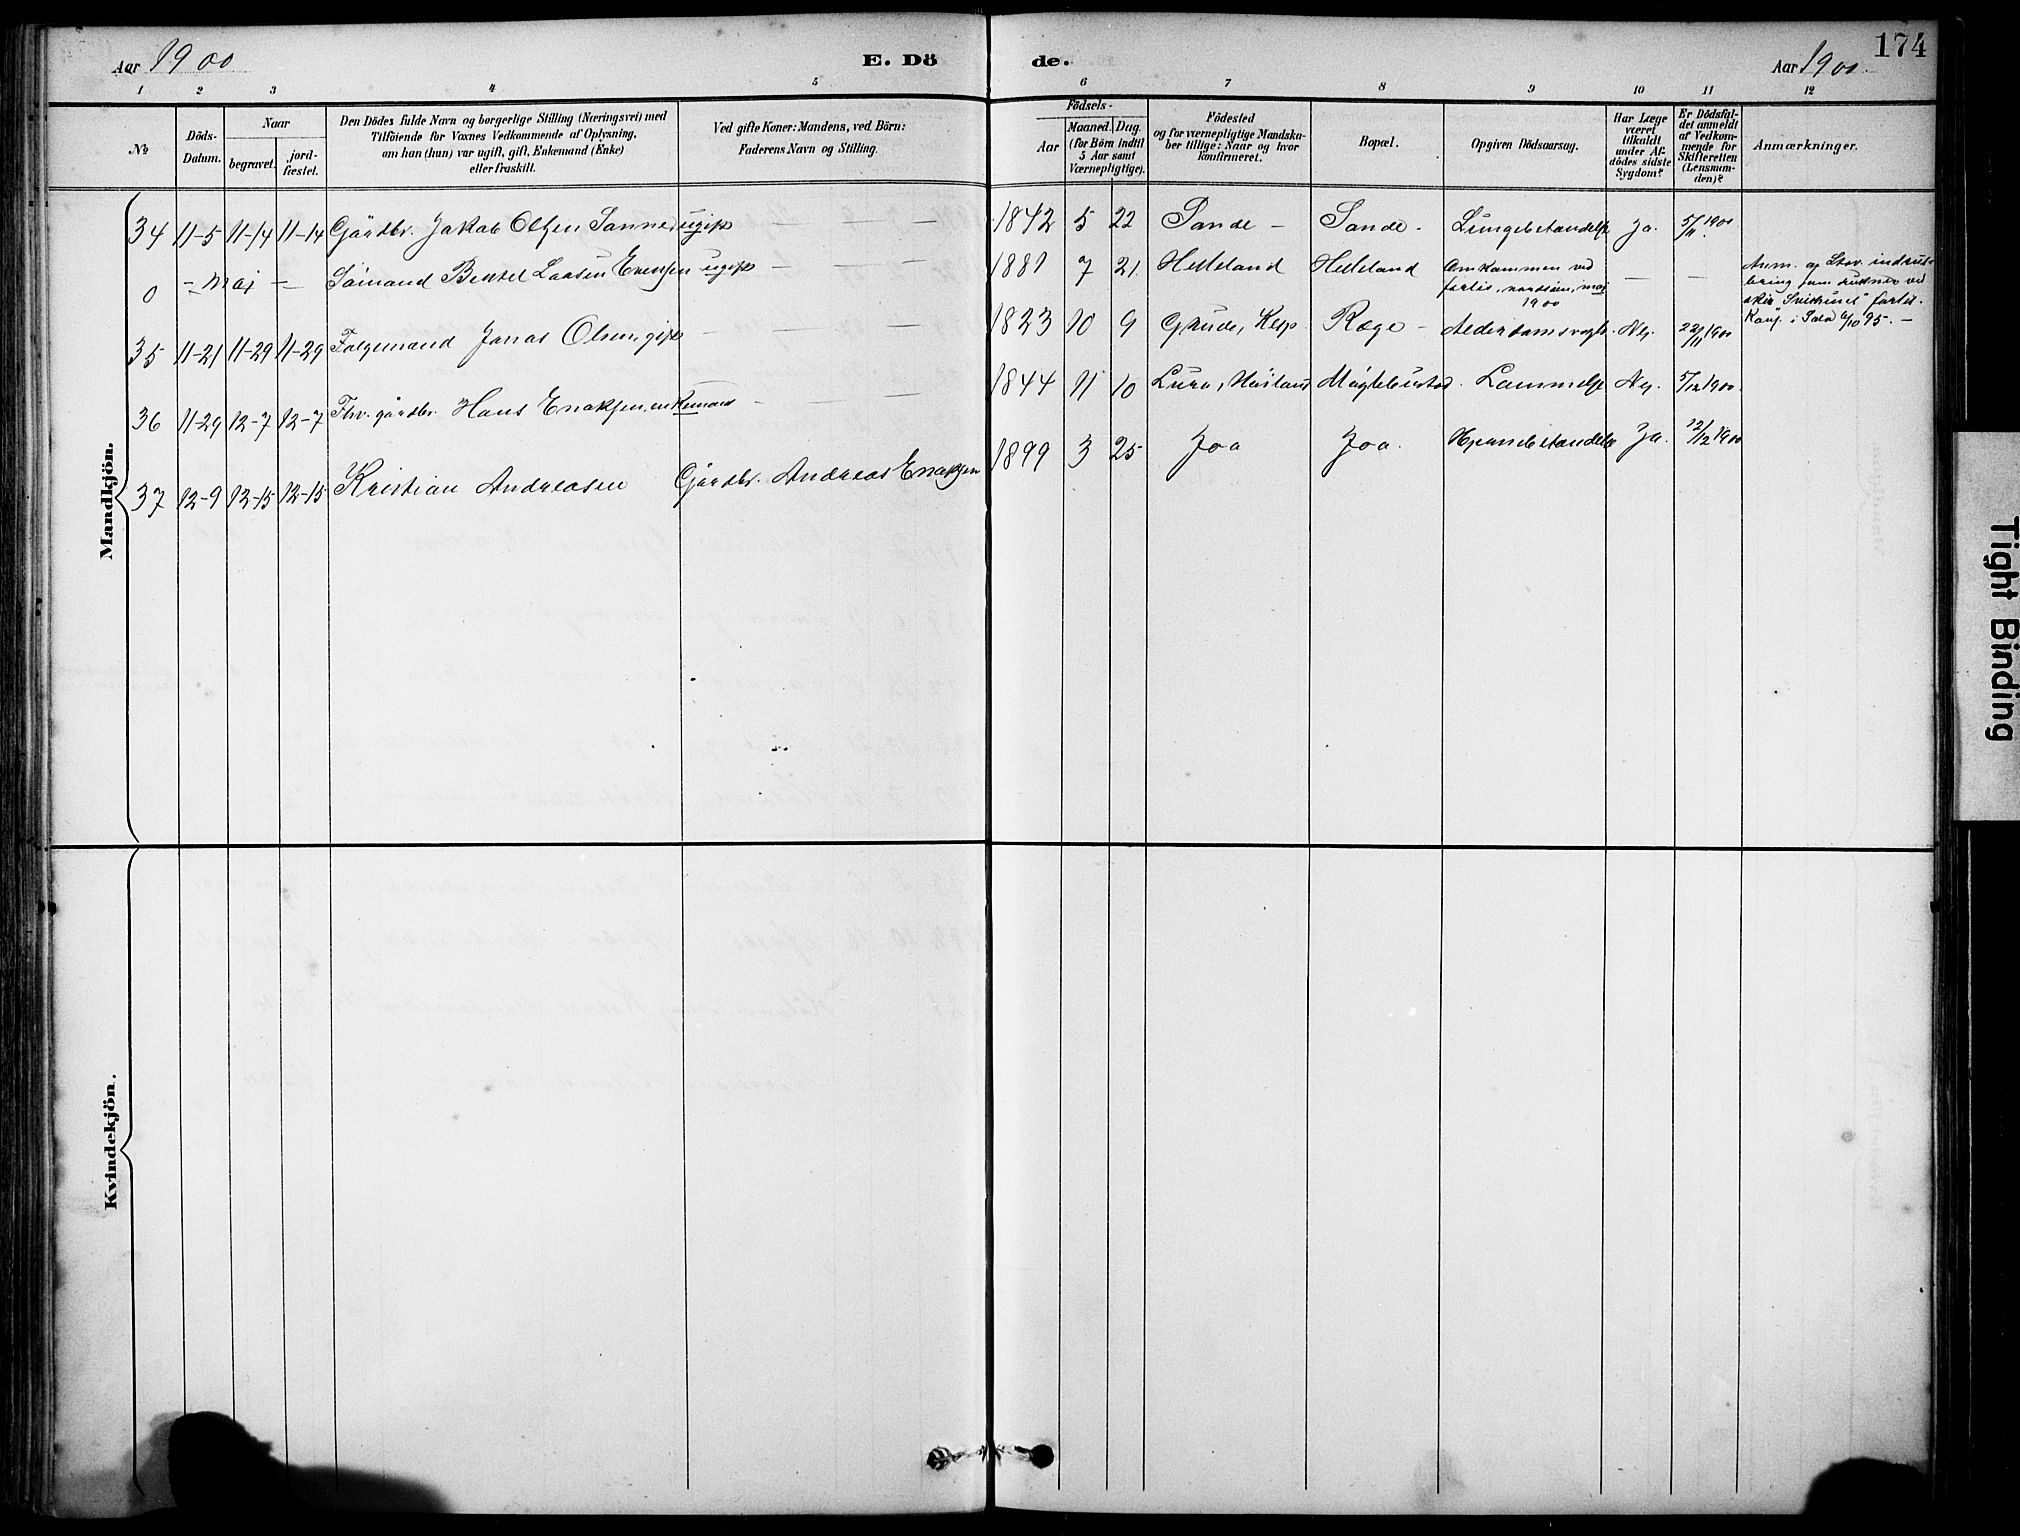 Aar 1900
E. Dö
de.
Aar 1900.
174
1 2 3 4 5 6 7 8 9 10 11 12
№
Döds-
Datum.
Naar
begravet.
jord-
fæstet.
Den Dödes fulde Navn og borgerlige Stilling (Næringsvei) med
Tilföiende for Voxnes Vedkommende af Oplysning,
om han (hun) var ugift, gift, Enkemand (Enke)
eller fraskilt.
Ved gifte Koner: Mandens, ved Börn:
Faderens Navn og Stilling.
Födsels-
Aar
Maaned. Dag
(for Börn indtil
5 Aar samt
Værnepligtige).
Födested
og for værnepligtige Mandska-
ber tillige: Naar og hvor
konfirmeret.
Bopæl.
Opgiven Dödsaarsag.
Har Læge
været
tilkaldt
under Af-
dödes sidste
Sygdom?
Er Dödsfal-
det anmeldt
af Vedkom-
mende for
Skifteretten
(Lensman-
den)?
Anmærkninger.
Mandkjön.
34 11-5 11-14 11-14 Gårdbr. Jakob Olsen Sanne, ugift — — — 1842 5 22 Sande — Sande - Lungebetændelse Ja. 5/11 1900
0 - Maj - Sömand Bertel Laasen Evensen ugift — — — 1881 7 21. Helleland Helleland Omkommen ved
forlis, nordsöen, maj
1900 — —
35 11-21 11-29 11-29 Jonas Olsen, gift — — — 1823 10 9 Grude, Klepp Ræge - Alderdomssvagh. Nej. 22/11 1900
36 11-29 12-7 12-7 Fhv. gårdbr. Hans Enoksen, enkemand — — — 1844 11 10 Lura, Höiland Lammelse Nej. 5/12 1900.
37 12-9 12-15 12-15 Kristian Andreasen Gårdbr. Andreas Enoksen 1899 3 25 Joa Joa. Ja. 12/12 1900
Kvindekjön.
Tight Binding